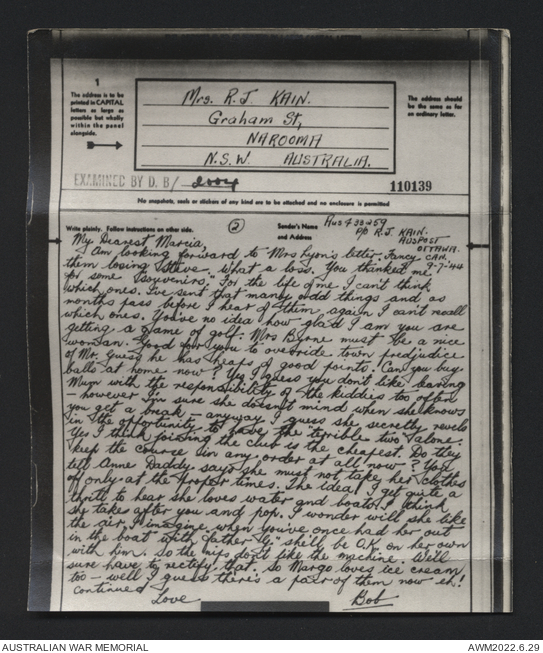 1
The address is to be
printed in CAPITAL
letters as large as
possible but wholly
within the panel
alongside.
Mrs. R.J. KAIN.
Graham St,
NAROOMA
N.S.W. AUSTRALIA.
The address should
be the same as for
an ordinary letter.
EXAMINED BY D.B/
110139
No snapshots, seals or stickers of any kind are to be attached and no enclosure is permitted
Write plainly. Follow instructions on other side.
2
Sender's Name
and Address
Aus 433259
P/O R.J. KAIN.
AUSPOST
OTTAWA.
CAN.
9-7-44
My Dearest Marcia,
I am looking forward to Mrs Lyon's letter. Fancy
them losing Steve, what a loss. You thanked me
for some "souvenirs". For the life of me I can't think
which ones. I've sent that many odd things and as
months pass before I hear of them again I can't recall
which ones. You've no idea how glad I am you are
getting a game of golf. Mrs Byrne must be a nice
woman. Good for you to override town predjudice
of Mr. Guess he has heaps of good points. Can you buy
balls at home now? Yes I guess you don't like leaving
Mum with the responsibility of the kiddies too often
- however I'm sure she doesn't mind when she knows
you get a break - anyway I guess she secretly revels
in the opportunity to have the terrible two alone.
Yes I think joining the club is the cheapest. Do they
keep the cource in any order at all now? You
tell Anne Daddy says she must not take her clothes
off only at the proper times. The idea! I get quite a
thrill to hear she loves water and boats. I think
she takes after you and pop. I wonder will she like
the air. I imagine when you've once had her out
in the boat with father "G" she'll be O.K. on her own
with him. So the nips don't like the machine. We'll
sure have to rectify that. So Margo loves ice cream
too - well I guess there's a pair of them now eh!
Continued
Love
Bob
AUSTRALIAN WAR MEMORIAL
AWM2022.6.29